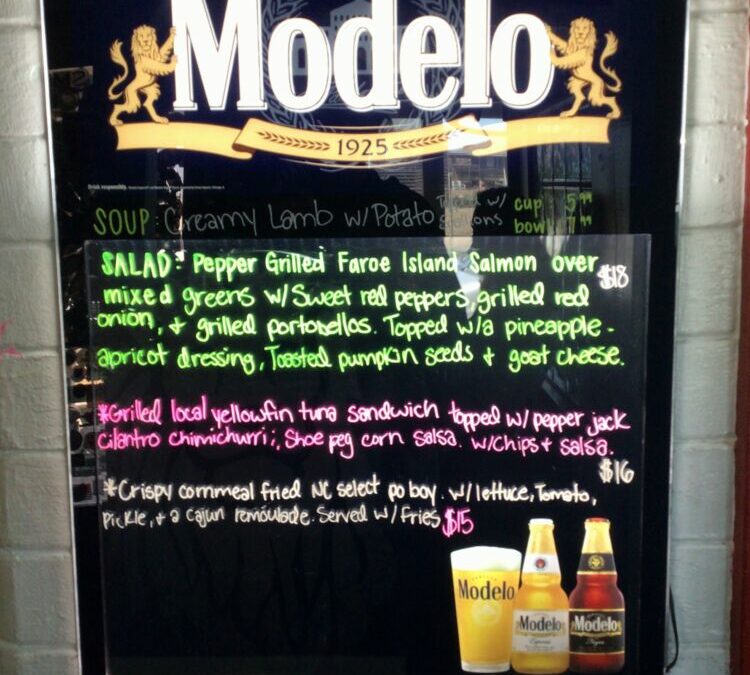 Modelo
1925
Drink responsibly.
SOUP: Creamy Lamb w/Potato w/ cup 5.99
bowl 7.99
SALAD: Pepper Grilled Faroe Island Salmon over $18
mixed greens w/ Sweet red peppers, grilled red
onion, + grilled portobellos. Topped w/a pineapple-
apricot dressing, Toasted pumpkin seeds + goat cheese.
*Grilled local yellowfin tuna sandwich topped w/ pepper jack
cilantro chimichurri; Shoe peg corn salsa. w/chips + salsa.
$16
*Crispy cornmeal fried NC select po boy. w/ lettuce, Tomato,
pickle, + a cajun remoulade. Served w/ fries $15
Modelo
Modelo
Modelo
Especial
Negra